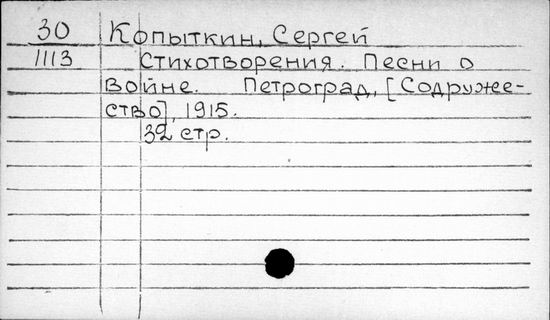 30 Копыткин, Сергей
1113 Стихотворения. Песни о
войне. Петроград, [Содруже-
ство], 1915.
32 стр.